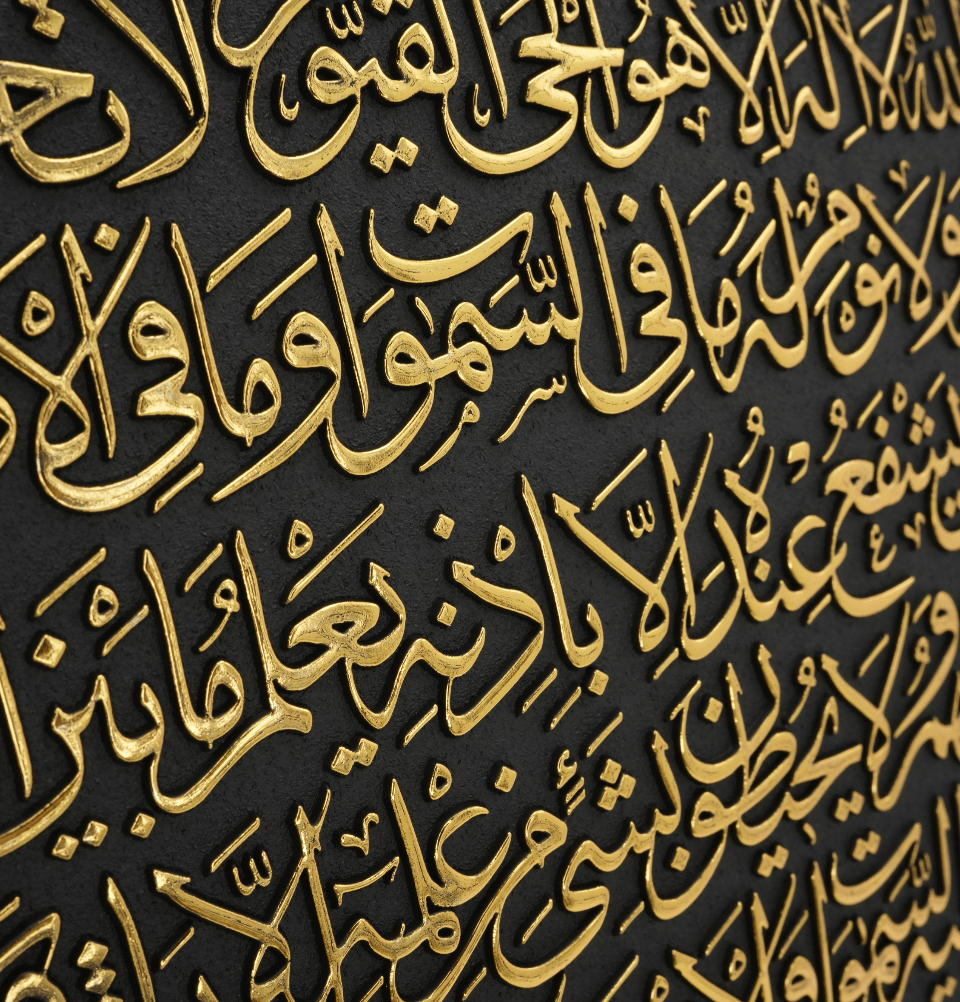 الله لا اله الا هو الحي القيوم لا تأخذه
ولا نوم له ما في السموات وما في الارض
يشفع عنده الا باذنه يعلم ما بين
ولا يحيطون بشئ من علمه الا
السموات